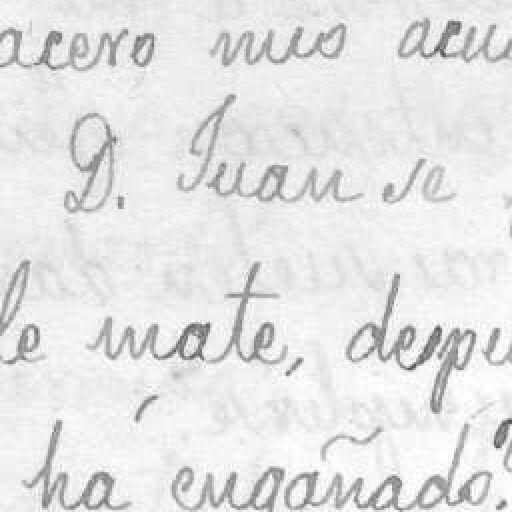 acero mio acu
D. Juan se
le mate, despu
há engañado?